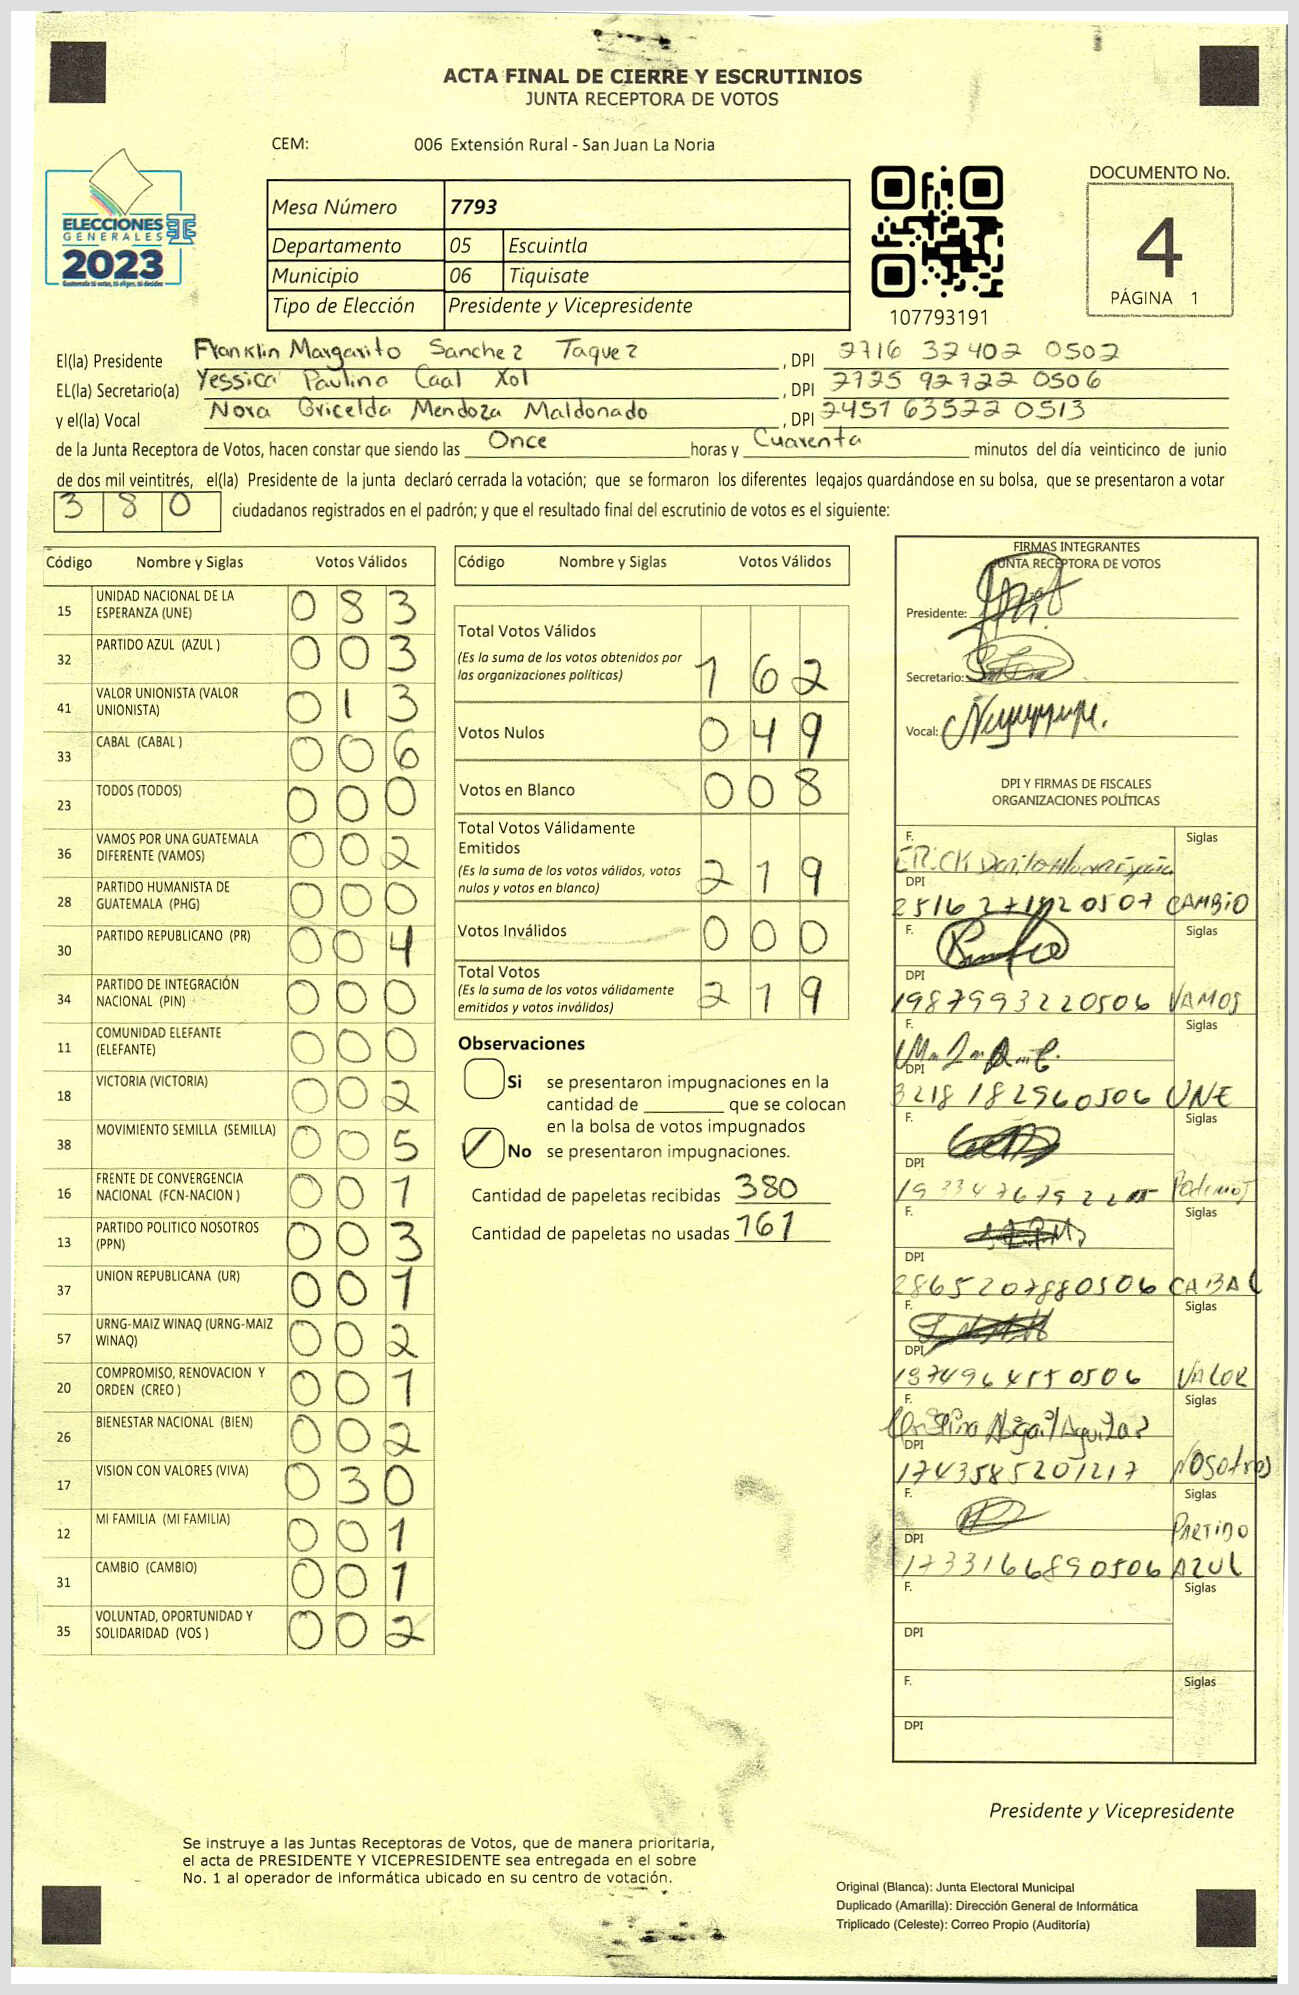 ACTA FINAL DE CIERRE Y ESCRUTINIOS
JUNTA RECEPTORA DE VOTOS
CEM: 006 Extensión Rural - San Juan La Noria
ELECCIONES
GENERALES
2023
Guatemala tú votas, tú eliges, tú decides
Mesa Número 7793
Departamento 05 Escuintla
Municipio 06 Tiquisate
Tipo de Elección Presidente y Vicepresidente
107793191
DOCUMENTO No.
4
PÁGINA 1
El(la) Presidente Franklin Margarito Sanchez Taquez , DPI 2716 32402 0502
EL(la) Secretario(a) Yessica Paulina Caal Xol , DPI 2725 92722 0506
y el(la) Vocal Nora Gricelda Mendoza Maldonado , DPI 2457 63522 0513
de la Junta Receptora de Votos, hacen constar que siendo las Once horas y Cuarenta minutos del día veinticinco de junio
de dos mil veintitrés, el(la) Presidente de la junta declaró cerrada la votación; que se formaron los diferentes legajos quardándose en su bolsa, que se presentaron a votar
3 8 0 ciudadanos registrados en el padrón; y que el resultado final del escrutinio de votos es el siguiente:
Código Nombre y Siglas Votos Válidos
15 UNIDAD NACIONAL DE LA ESPERANZA (UNE) 0 8 3
32 PARTIDO AZUL (AZUL ) 0 0 3
41 VALOR UNIONISTA (VALOR UNIONISTA) 0 1 3
33 CABAL (CABAL ) 0 0 6
23 TODOS (TODOS) 0 0 0
36 VAMOS POR UNA GUATEMALA DIFERENTE (VAMOS) 0 0 2
28 PARTIDO HUMANISTA DE GUATEMALA (PHG) 0 0 0
30 PARTIDO REPUBLICANO (PR) 0 0 4
34 PARTIDO DE INTEGRACIÓN NACIONAL (PIN) 0 0 0
11 COMUNIDAD ELEFANTE (ELEFANTE) 0 0 0
18 VICTORIA (VICTORIA) 0 0 2
38 MOVIMIENTO SEMILLA (SEMILLA) 0 0 5
16 FRENTE DE CONVERGENCIA NACIONAL (FCN-NACION ) 0 0 1
13 PARTIDO POLITICO NOSOTROS (PPN) 0 0 3
37 UNION REPUBLICANA (UR) 0 0 1
57 URNG-MAIZ WINAQ (URNG-MAIZ WINAQ) 0 0 2
20 COMPROMISO, RENOVACION Y ORDEN (CREO ) 0 0 1
26 BIENESTAR NACIONAL (BIEN) 0 0 2
17 VISION CON VALORES (VIVA) 0 3 0
12 MI FAMILIA (MI FAMILIA) 0 0 1
31 CAMBIO (CAMBIO) 0 0 1
35 VOLUNTAD, OPORTUNIDAD Y SOLIDARIDAD (VOS ) 0 0 2
Código Nombre y Siglas Votos Válidos
Total Votos Válidos
(Es la suma de los votos obtenidos por
las organizaciones políticas) 1 6 2
Votos Nulos 0 4 9
Votos en Blanco 0 0 8
Total Votos Válidamente
Emitidos
(Es la suma de los votos válidos, votos
nulos y votos en blanco) 2 1 9
Votos Inválidos 0 0 0
Total Votos
(Es la suma de los votos válidamente
emitidos y votos inválidos) 2 1 9
Observaciones
Si se presentaron impugnaciones en la
cantidad de ________ que se colocan
en la bolsa de votos impugnados
No se presentaron impugnaciones.
Cantidad de papeletas recibidas 380
Cantidad de papeletas no usadas 161
FIRMAS INTEGRANTES
JUNTA RECEPTORA DE VOTOS
Presidente:
Secretario:
Vocal:
DPI Y FIRMAS DE FISCALES
ORGANIZACIONES POLÍTICAS
F. Siglas
ERICK
DPI
CAMBIO
F. Siglas
DPI
1987993220506 VAMOS
F. Siglas
DPI
3218 182960506 UNE
F. Siglas
DPI
Podemos
F. Siglas
DPI
2865207880506 CABAL
F. Siglas
DPI
1874964550506 VALOR
F. Siglas
Cristina Abigail Aguilar
DPI
1743585201217 NOSOTROS
F. Siglas
PARTIDO
DPI
1733166890506 AZUL
F. Siglas
DPI
F. Siglas
DPI
Presidente y Vicepresidente
Se instruye a las Juntas Receptoras de Votos, que de manera prioritaria,
el acta de PRESIDENTE Y VICEPRESIDENTE sea entregada en el sobre
No. 1 al operador de informática ubicado en su centro de votación.
Original (Blanca): Junta Electoral Municipal
Duplicado (Amarilla): Dirección General de Informática
Triplicado (Celeste): Correo Propio (Auditoría)